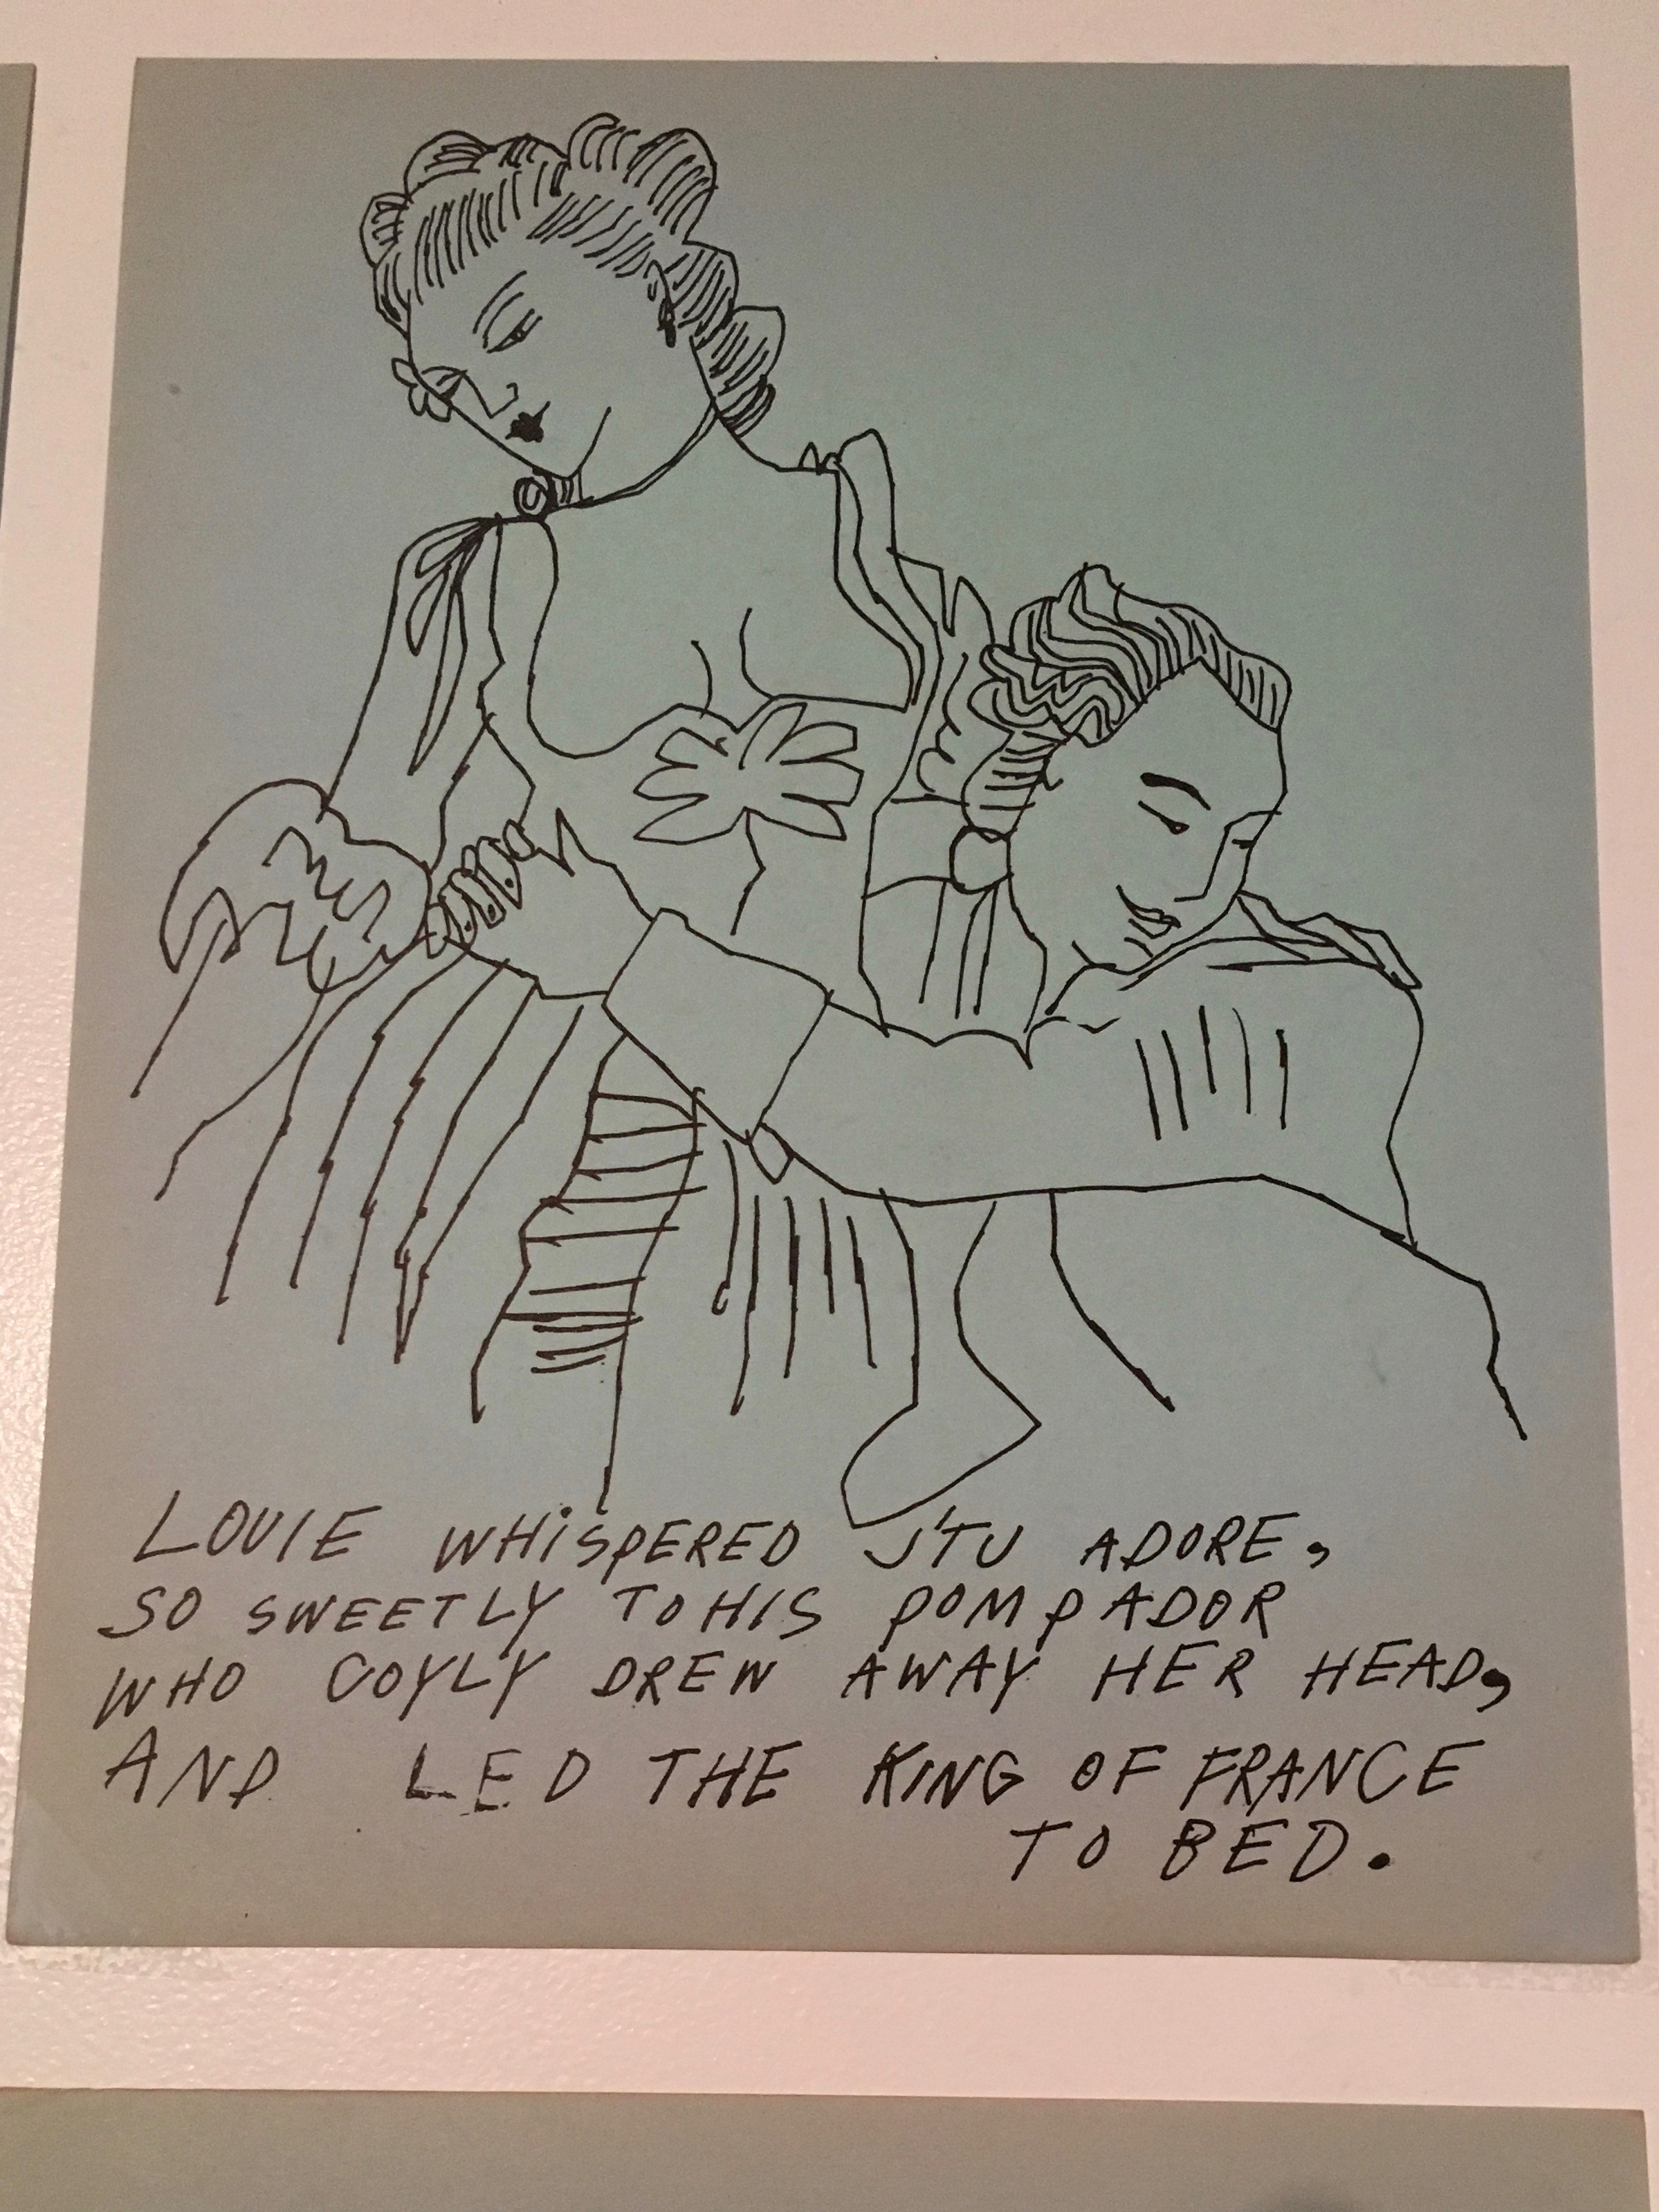 LOUIE WHiSPERED J'TU ADORE,
SO SWEETLY TO HIS POMPADOR
WHO COYLY DREW AWAY HER HEAD,
AND LED THE KING OF FRANCE
TO BED.